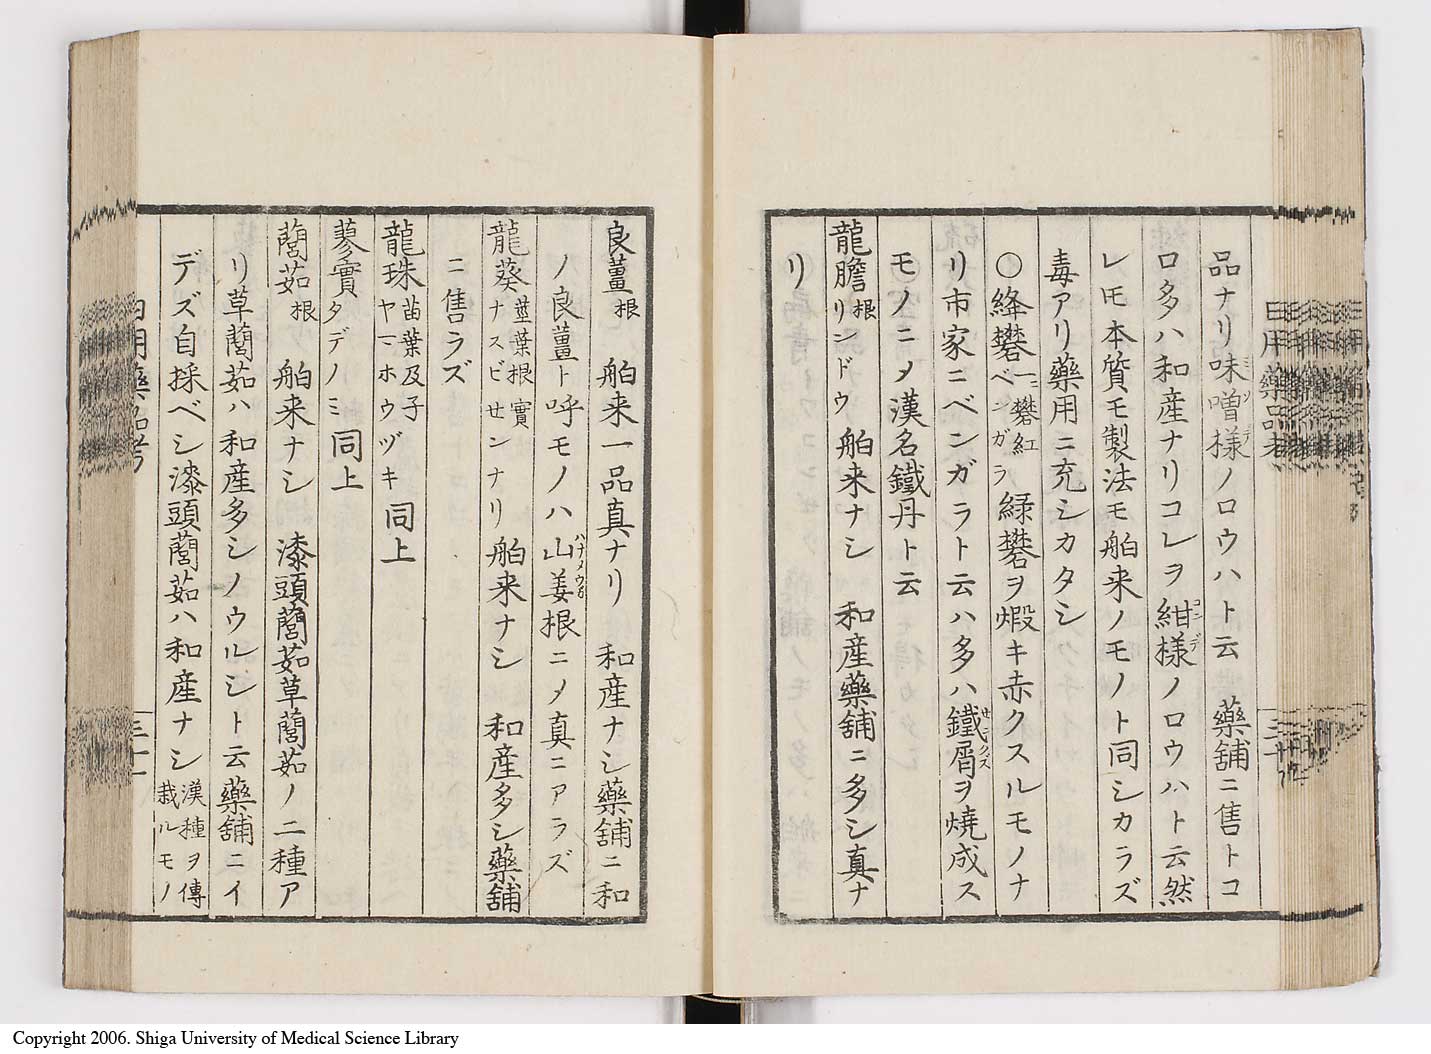 品ナリ味噌様ノロウハト云 藥舗ニ售トコ
ロ多ハ和産ナリコレヲ紺様ノロウハト云然
レモ本質モ製法モ舶来ノモノト同シカラズ
毒アリ藥用ニ充シカタシ
○絳礬 一ニ礬紅 ベンガラ 緑礬ヲ煅キ赤クスルモノナ
リ市家ニベンガラト云ハ多ハ鐵屑ヲ焼成ス
モノニメ漢名鐵丹ト云
龍膽 根 リンドウ 舶来ナシ 和産藥舗ニ多シ真ナ
リ
良薑 根 舶来一品真ナリ 和産ナシ藥舗ニ和
ノ良薑ト呼モノハ山姜根ニメ真ニアラズ
龍葵 莖葉根實 ナスビせンナリ 舶来ナシ 和産多シ藥舗
ニ售ラズ
龍珠 苗葉及子 ヤマホウヅキ 同上
蓼實 タデノミ 同上
藺茹 根 舶来ナシ 漆頭藺茹草藺茹ノ二種ア
リ草藺茹ハ和産多シノウルシト云藥舗ニイ
デズ自採ベシ漆頭藺茹ハ和産ナシ 漢種ヲ傳
栽ルモノ
日用藥品考
三十
日用藥品考
三十一
Copyright 2006. Shiga University of Medical Science Library